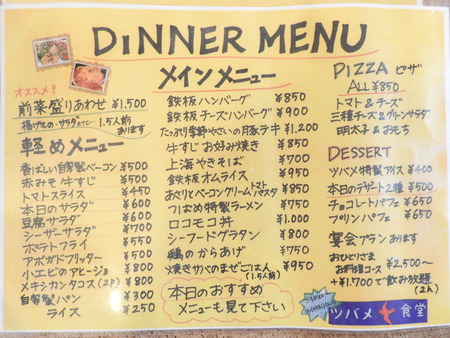 DINNER MENU
オススメ!
前菜盛りあわせ ¥1,500
揚げもの・サラダ etc… 1.5人前あります
軽めメニュー
香ばしい自家製ベーコン ¥500
赤みそ牛すじ ¥500
トマトスライス ¥450
本日のサラダ ¥600
豆腐サラダ ¥600
シーザーサラダ ¥700
ポテトフライ ¥550
アボガドフリッター ¥500
小エビのアヒージョ ¥800
メキシカンタコス(2P) ¥800
自家製パン ¥300
ライス ¥250
メインメニュー
鉄板ハンバーグ ¥850
鉄板チーズハンバーグ ¥900
たっぷり季節やさいの豚ラキ ¥1,200
牛すじお好み焼き ¥850
上海やきそば ¥700
鉄板オムライス ¥950
あさりとベーコンクリームトマトパスタ ¥850
つばめ特製ラーメン ¥750
ロコモコ丼 ¥1,000
シーフードグラタン ¥800
鶏のからあげ ¥750
焼きサバのまぜごはん (1.5人前) ¥950
本日のおすすめ
メニューも見て下さい
PIZZA ピザ
ALL ¥850
トマト&チーズ
三種チーズ&グリーンサラダ
明太子&おもち
DESSERT
ツバメ特製アイス ¥400
本日のデザート2種 ¥500
チョコレートパフェ ¥650
プリンパフェ ¥650
宴会プランあります
おひとりさま
お料理コース ¥2,500〜
+¥1,700で飲み放題
(2h)
ツバメ食堂